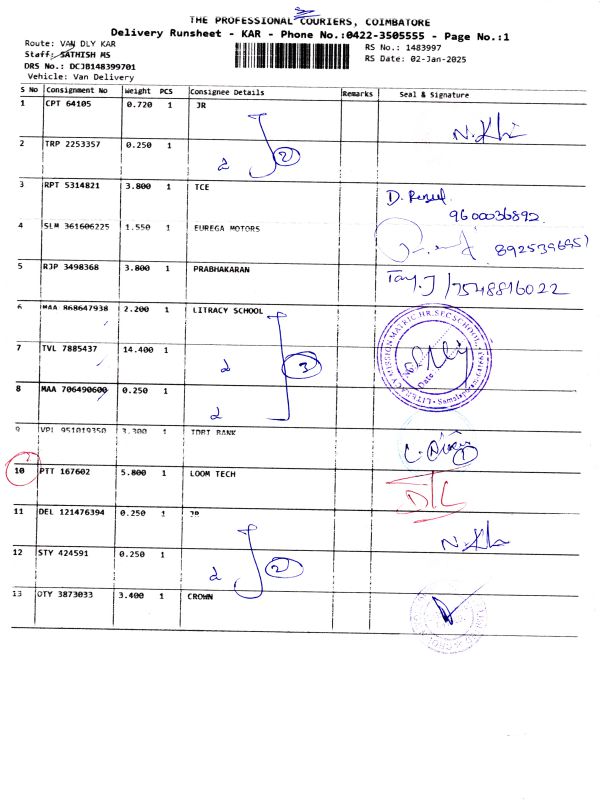 THE PROFESSIONAL COURIERS, COIMBATORE
Delivery Runsheet - KAR - Phone No.:0422-3505555 - Page No.:1
Route: VAN DLY KAR
RS No.: 1483997
Staff: SATHISH MS
RS Date: 02-Jan-2025
DRS No.: DCJB148399701
Vehicle: Van Delivery
S No Consignment No Weight PCS Consignee Details Remarks Seal & Signature
1 CPT 64105 0.720 1 JR
N.Khi
2 TRP 2253357 0.250 1
2
3 RPT 5314821 3.800 1 TCE
9600036892
4 SLM 361606225 1.550 1 EUREGA MOTORS
5 RJP 3498368 3.800 1 PRABHAKARAN
7548816022
6 MAA 868647938 2.200 1 LITRACY SCHOOL
7 TVL 7885437 14.400 1
3
8 MAA 706490600 0.250 1
Date
9 VPI 951019350 3.300 1 IDBI BANK
10 PTT 167602 5.800 1 LOOM TECH
D/L
11 DEL 121476394 0.250 1 JR
N.Kh
12 STY 424591 0.250 1
2
13 OTY 3873033 3.400 1 CROWN